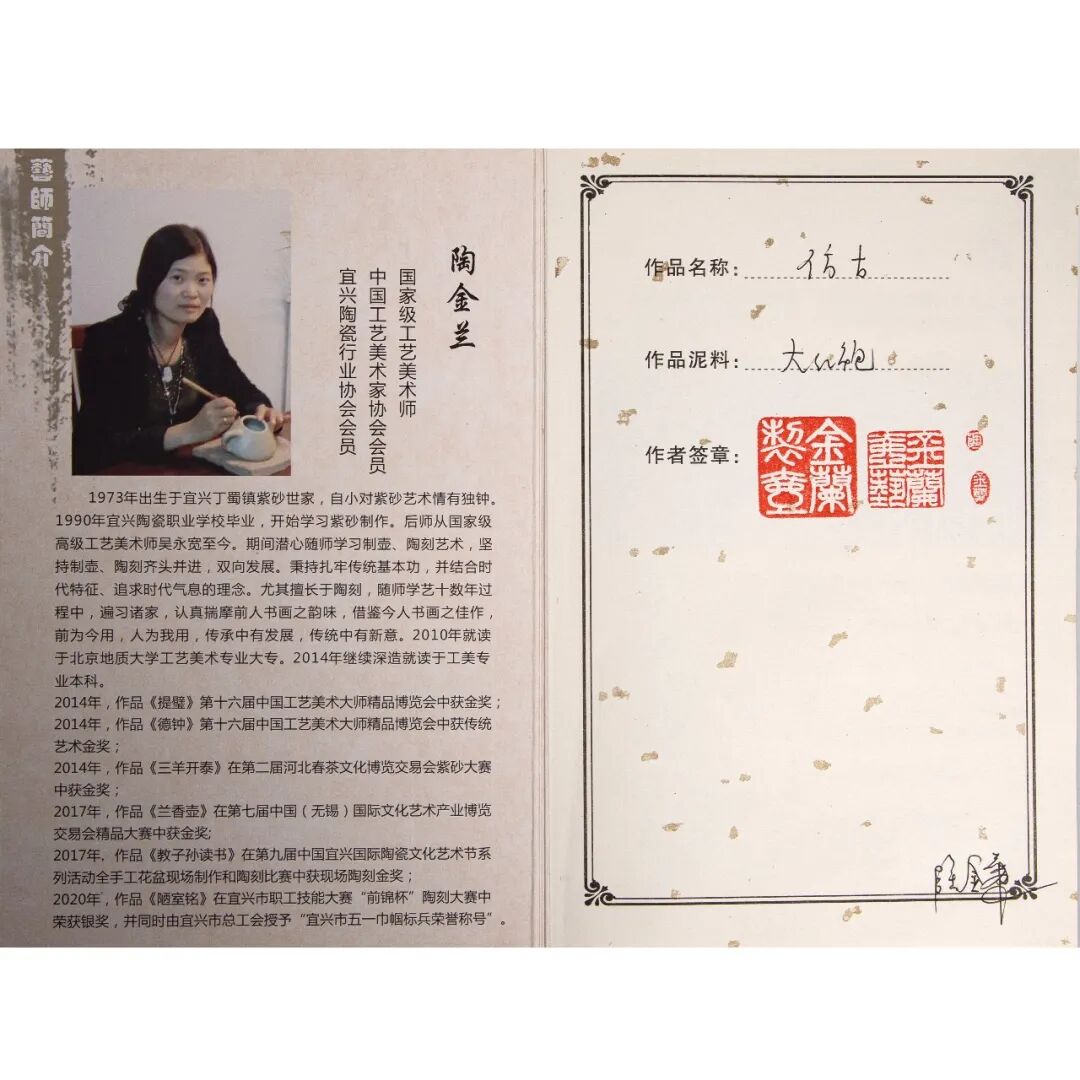 藝師簡介
陶金兰
国家级工艺美术师
中国工艺美术家协会会员
宜兴陶瓷行业协会会员
1973年出生于宜兴丁蜀镇紫砂世家，自小对紫砂艺术情有独钟。
1990年宜兴陶瓷职业学校毕业，开始学习紫砂制作。后师从国家级
高级工艺美术师吴永宽至今。期间潜心随师学习制壶、陶刻艺术，坚
持制壶、陶刻齐头并进，双向发展。秉持扎牢传统基本功，并结合时
代特征、追求时代气息的理念。尤其擅长于陶刻，随师学艺十数年过
程中，遍习诸家，认真揣摩前人书画之韵味，借鉴今人书画之佳作，
前为今用，人为我用，传承中有发展，传统中有新意。2010年就读
于北京地质大学工艺美术专业大专。2014年继续深造就读于工美专
业本科。
2014年，作品《提璧》第十六届中国工艺美术大师精品博览会中获金奖；
2014年，作品《德钟》第十六届中国工艺美术大师精品博览会中获传统
艺术金奖；
2014年，作品《三羊开泰》在第二届河北春茶文化博览交易会紫砂大赛
中获金奖；
2017年，作品《兰香壶》在第七届中国（无锡）国际文化艺术产业博览
交易会精品大赛中获金奖;
2017年，作品《教子孙读书》在第九届中国宜兴国际陶瓷文化艺术节系
列活动全手工花盆现场制作和陶刻比赛中获现场陶刻金奖；
2020年，作品《陋室铭》在宜兴市职工技能大赛“前锦杯”陶刻大赛中
荣获银奖，并同时由宜兴市总工会授予“宜兴市五一巾帼标兵荣誉称号”。
作品名称：仿古
作品泥料：大红袍
作者签章：
金蘭製壺
陶金兰